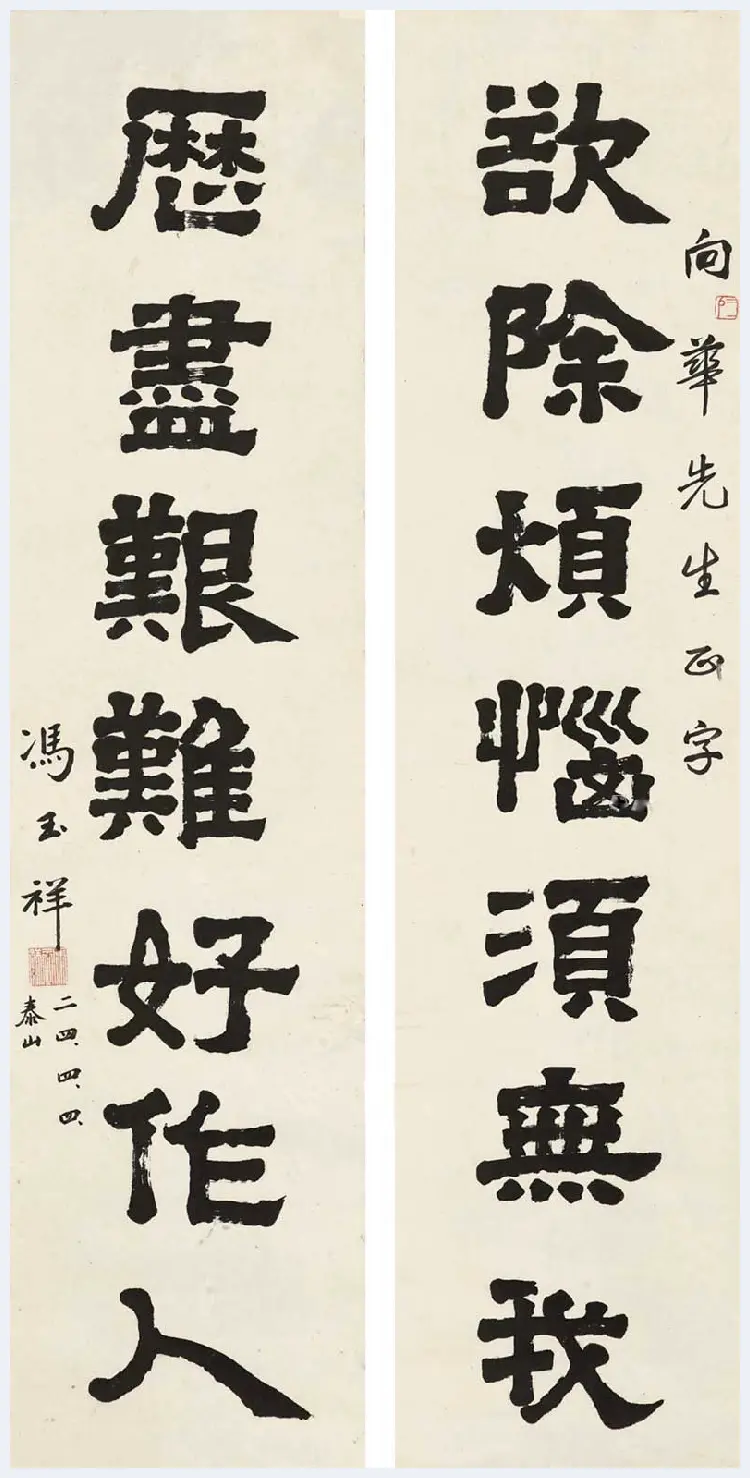 向華先生正字
欲除煩惱須無我
歷盡艱難好作人
馮玉祥
二四、四、四、
泰山